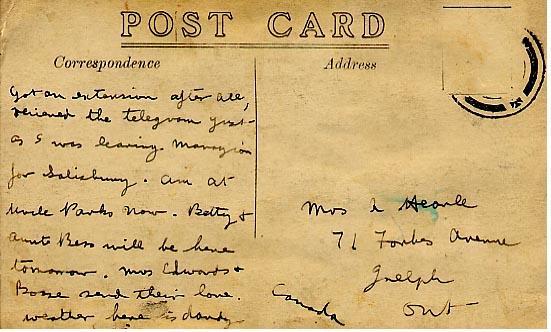 POST CARD
Correspondence
Address
Got an extension after all,
recieved the telegram just
as I was leaving Marazion
for Salisbury. am at
Uncle Parks now. Betty &
Aunt Bess will be here
tomorrow. Mrs Edwards &
send their love.
weather here is dandy
Mrs Hearle
71 Forbes Avenue
Guelph
Ont
Canada